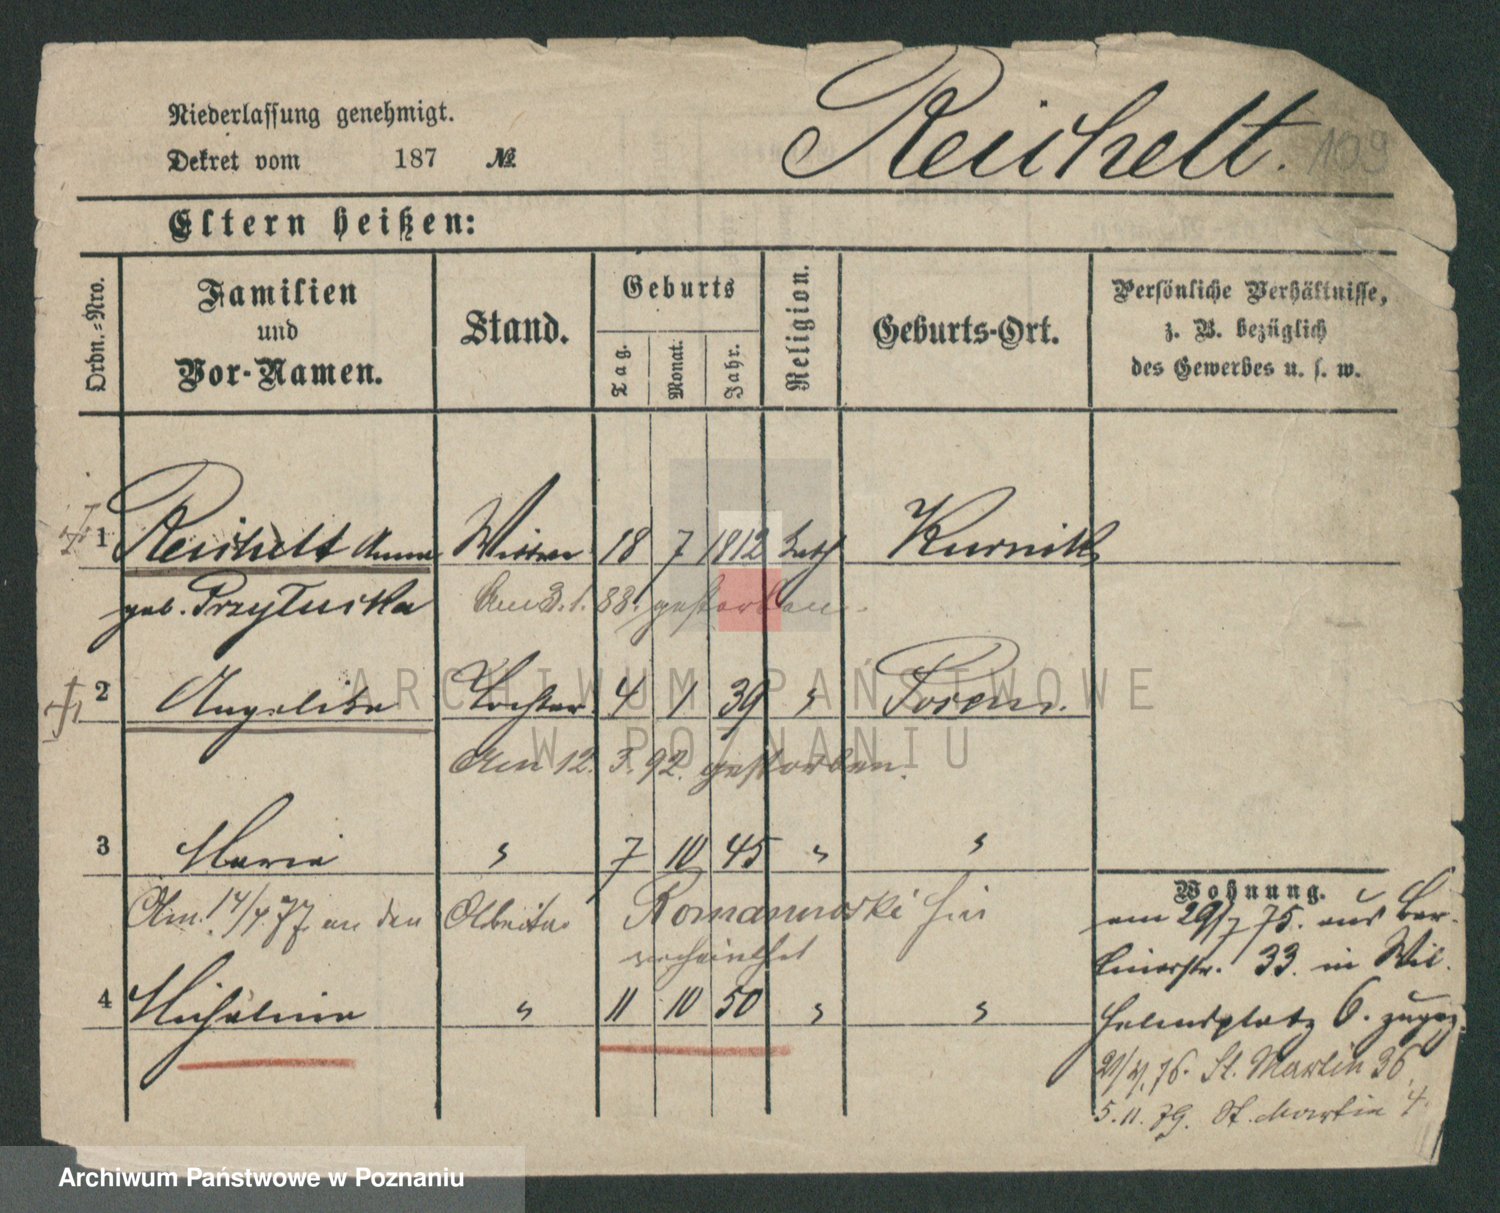 Niederlassung genehmigt.
Dekret vom 187 №
Reichelt. 109
Eltern heißen:
Ordn.=Nro.
Familien
und
Vor-Namen.
Stand.
Geburts
Tag.
Monat.
Jahr.
Religion.
Geburts-Ort.
Persönliche Verhältnisse,
z. B. bezüglich
des Gewerbes u. s. w.
1 Reichelt Anna Wittwe 18 7 1812 kath Kurnik
geb. Przytuska Am 3.1.88. gestorben.
2 Angelika Tochter 4 1 39 " Posen.
Am 12. 3. 92. gestorben.
3 Maria " 7 10 45 " "
Am 14/4 77 an den Arbeiter Romanowski hier
verheirathet
4 Michalina " 11 10 50 " "
Wohnung.
am 29/7 75. aus Ber-
linerstr. 33. in Wil-
helmsplatz 6. zugez.
21/4.76. St. Martin 36
5.11.79. St. Martin 4
ARCHIWUM PAŃSTWOWE
W POZNANIU
Archiwum Państwowe w Poznaniu